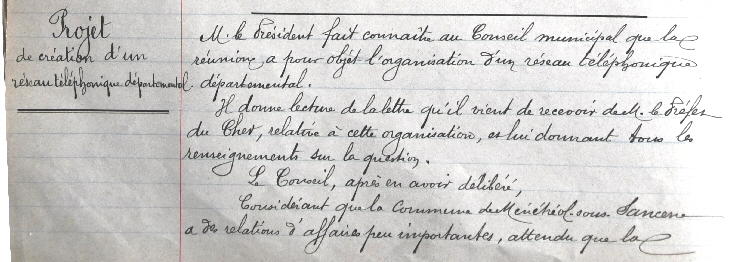 Projet
de création d'un
réseau téléphonique départemental.
M. le Président fait connaître au Conseil municipal que la
réunion, a pour objet l'organisation d'un réseau téléphonique
départemental.
Il donne lecture de la lettre qu'il vient de recevoir de M. le Préfet
du Cher, relative à cette organisation, et lui donnant tous les
renseignements sur la question.
Le Conseil, après en avoir délibéré,
Considérant que la Commune de Ménétréol-sous-Sancerre
a des relations d'affaires peu importantes, attendu que la